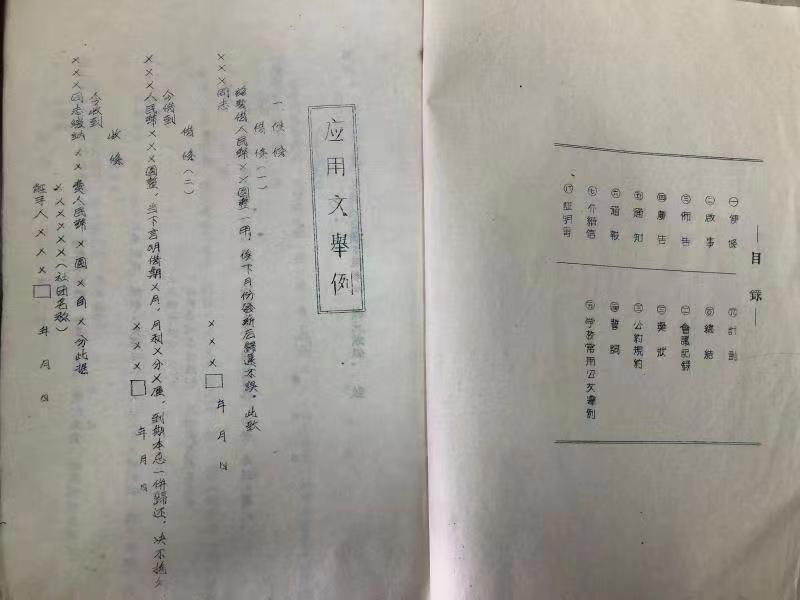 —目录—
㊀便條
㊁啟事
㊂佈告
㊃廣告
㊄通知
㊅通報
㊆介紹信
㊇証明書
㊈計劃
㊉總結
会議記錄
奖狀
公約規約
誓詞
学校常用公文舉例
应用文舉例
一 便條
借條（一）
×××同志
給我借人民幣××圓整一用，俟下月份發薪后歸還不悞。此致
×××□ 年 月 日
借條（二）
今借到
×××人民幣×××圓整，当下言明借期×月，月利×分×厘，到期本息一併歸还，决不拖欠
×××□ 年 月 日
收條
今收到
×××同志繳納××費人民幣×圓×角×分此据
×××××（社团名称）
經手人×××□ 年 月 日